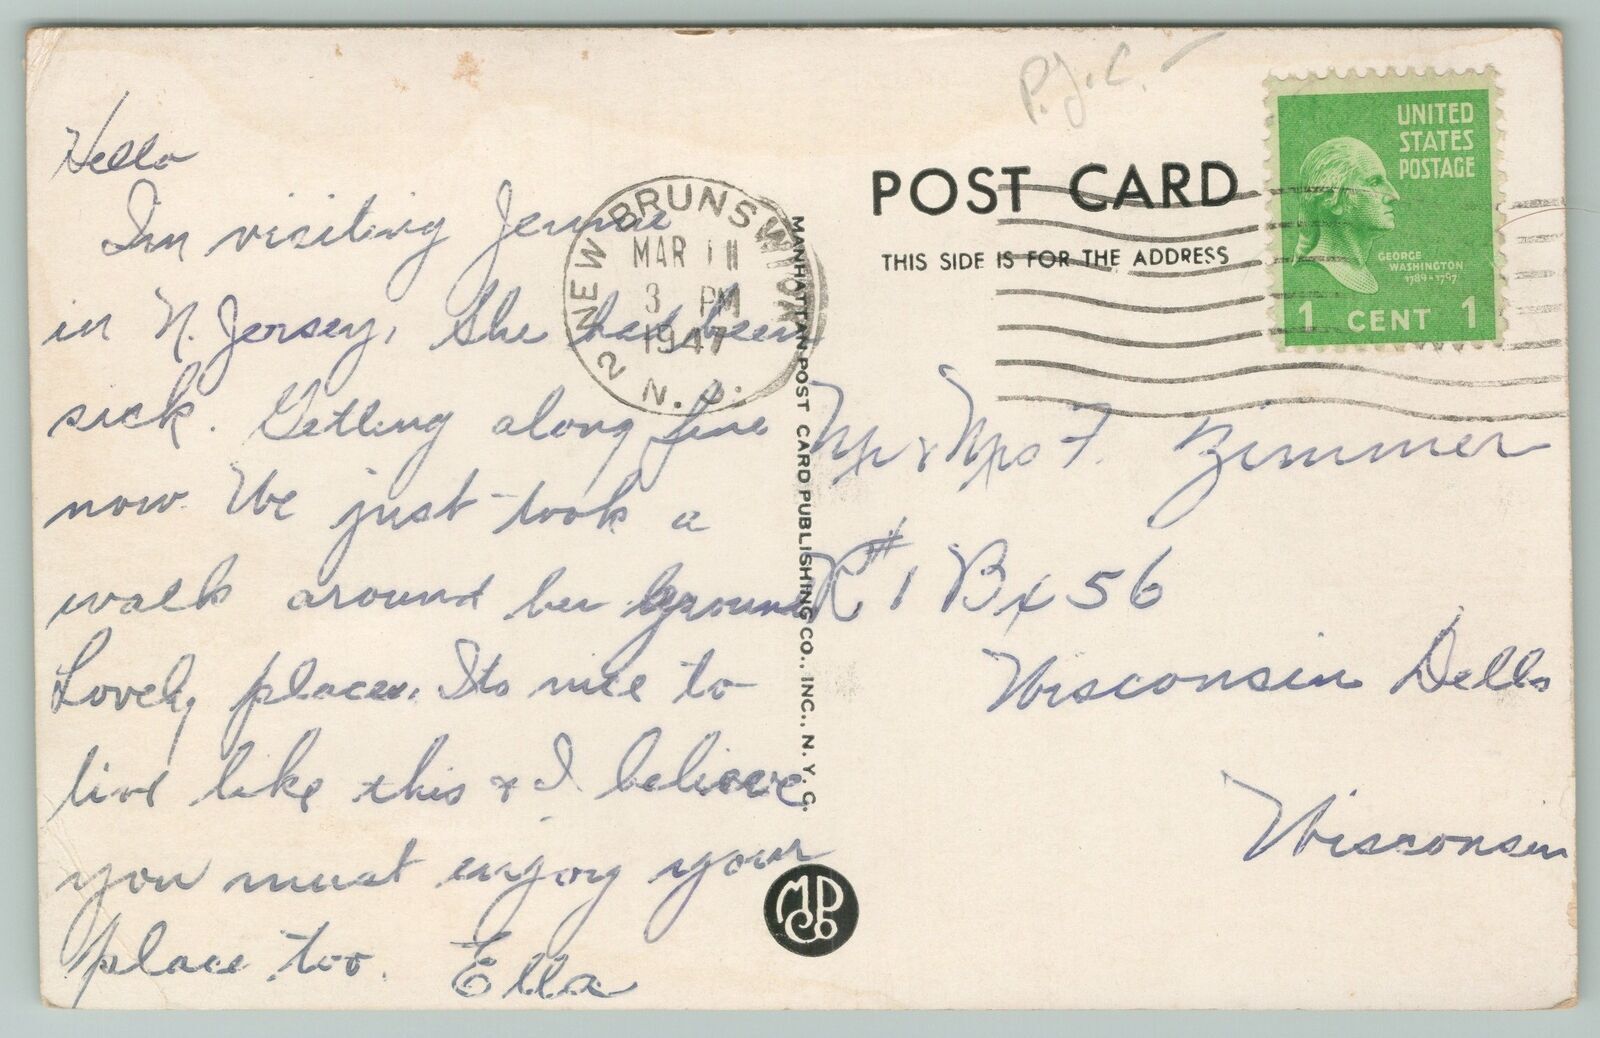 Hello
Im visiting Jennie
in N. Jersey, She had been
sick. Getting along fine
now. We just took a
walk around her ground
Lovely place. Its nice to
live like this & I believe
you must enjoy your
place too. Ella
NEW BRUNSWICK
MAR 11
3 PM
1947
2 N. J.
MANHATTAN POST CARD PUBLISHING CO., INC., N. Y. C.
MPCo
P.J.C. –
POST CARD
THIS SIDE IS FOR THE ADDRESS
UNITED
STATES
POSTAGE
GEORGE
WASHINGTON
1789-1797
1 CENT 1
Mr & Mrs F. Zimmer
R#1 Bx 56
Wisconsin Dells
Wisconsin